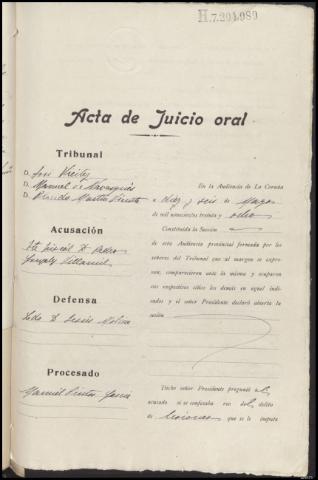 H.7.204.989
Acta de Juicio oral
Tribunal
D. José
D. Manuel de
D. Martín
En la Audiencia de La Coruña
a diez y seis de Mayo
de mil novecientos treinta y ocho
Constituída la Sección
de esta Audiencia provincial formada por los
señores del Tribunal que al margen se expre-
san, comparecieron ante la misma y ocuparon
sus respectivos sitios los demás en aquel indi-
cados y el señor Presidente declaró abierta la
sesión
Acusación
D. Pedro
Villamil
Defensa
Ldo D. Jesús Molina
Procesado
Manuel García
Dicho señor Presidente preguntó al
acusado si se confesaba reo del delito
de lesiones que se le imputa